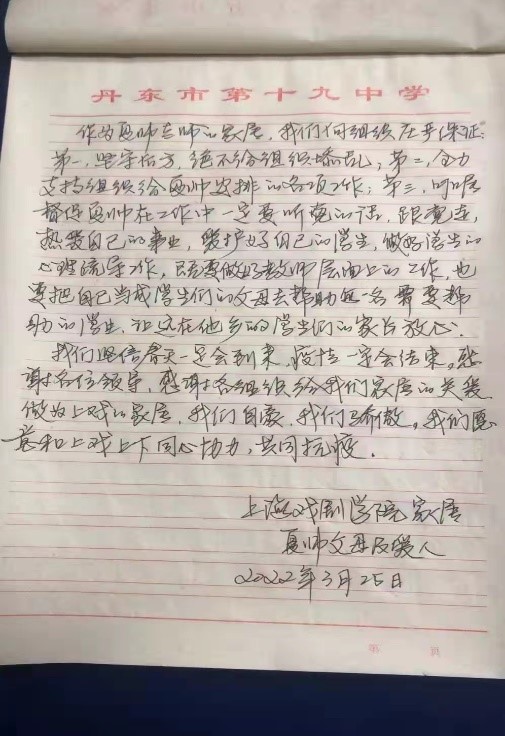 丹东市第十九中学
作为夏帅老师的家属，我们向组织庄严保证：
第一，坚守后方，绝不给组织添乱；第二，全力
支持组织给夏帅安排的各项工作；第三，叮嘱
督促夏帅在工作中一定要听党的话，跟党走，
热爱自己的事业，爱护好自己的学生，做好学生的
心理疏导工作，既要做好教师层面上的工作，也
要把自己当成学生们的父母去帮助每一名需要帮
助的学生，让远在他乡的学生们的家长放心。
我们坚信春天一定会到来，疫情一定会结束。感
谢各位领导，感谢各组织给我们家属的关爱，
做为上戏的家属，我们自豪，我们骄傲。我们愿
意和上戏上下同心协力，共同抗疫．
上海戏剧学院家属
夏帅父母及爱人
2022年3月25日
第 页